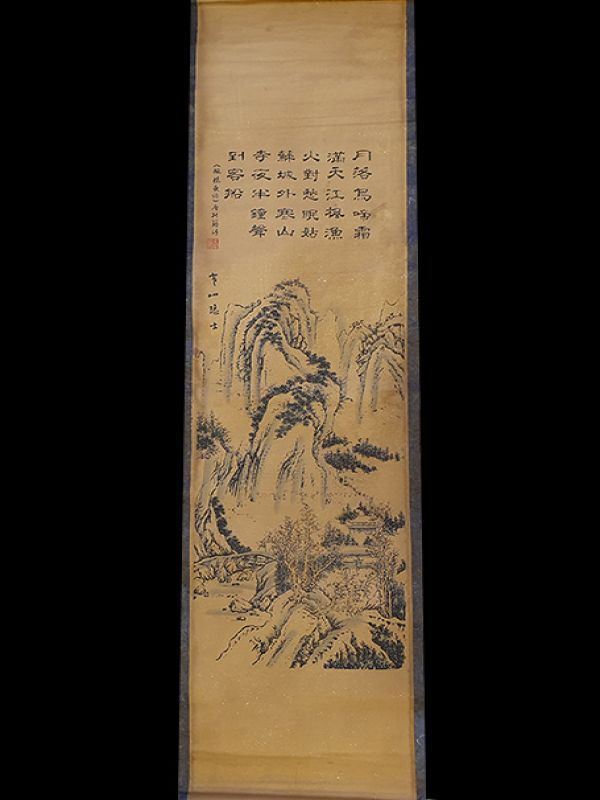 月落烏啼霜
滿天江楓漁
火對愁眠姑
蘇城外寒山
寺夜半鐘聲
到客船
《楓橋夜泊》